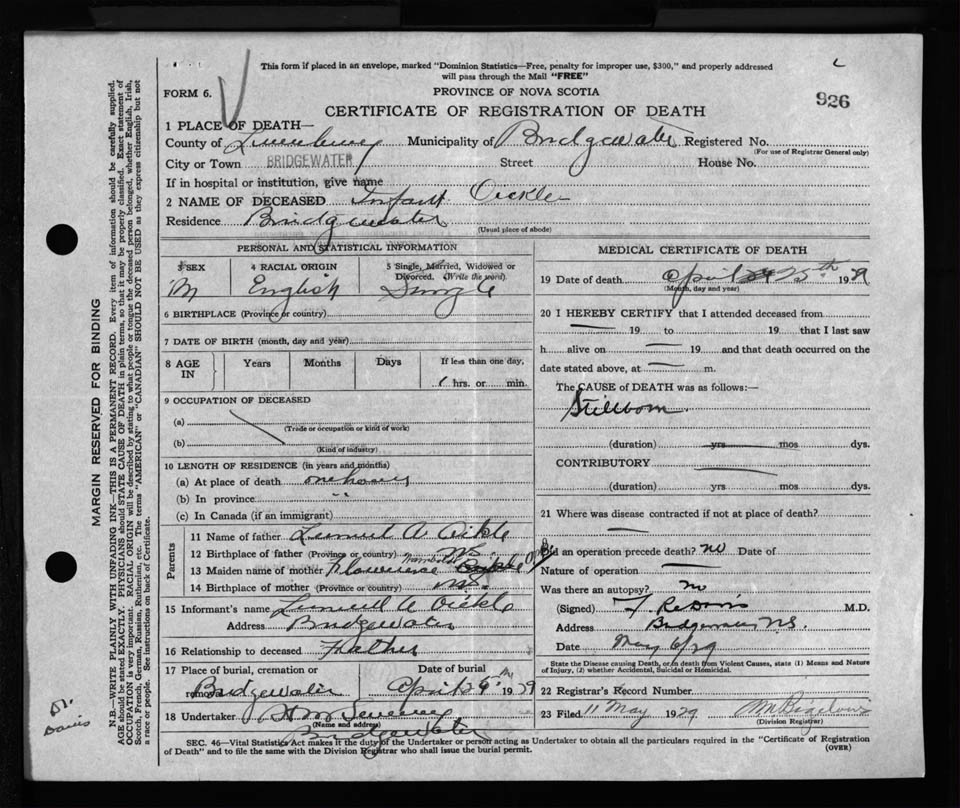 This form if placed in an envelope, marked "Dominion Statistics—Free, penalty for improper use, $300," and properly addressed
will pass through the Mail "FREE"
FORM 6.
PROVINCE OF NOVA SCOTIA
926
CERTIFICATE OF REGISTRATION OF DEATH
1 PLACE OF DEATH—
County of Lunenburg Municipality of Bridgewater Registered No.
(For use of Registrar General only)
City or Town BRIDGEWATER Street House No.
If in hospital or institution, give name
2 NAME OF DECEASED Infant Oickle
Residence Bridgewater
(Usual place of abode)
PERSONAL AND STATISTICAL INFORMATION
3 SEX 4 RACIAL ORIGIN 5 Single, Married, Widowed or
Divorced. (Write the word)
M English Single
6 BIRTHPLACE (Province or country)
7 DATE OF BIRTH (month, day and year)
8 AGE IN Years Months Days If less than one day,
1 hrs. or min.
9 OCCUPATION OF DECEASED
(a)
(Trade or occupation or kind of work)
(b)
(Kind of industry)
10 LENGTH OF RESIDENCE (in years and months)
(a) At place of death one hour
(b) In province " "
(c) In Canada (if an immigrant)
Parents
11 Name of father Lemuel A Oickle
12 Birthplace of father (Province or country) N.S.
13 Maiden name of mother Florence
14 Birthplace of mother (Province or country) N.S.
15 Informant's name Lemuel A Oickle
Address Bridgewater
16 Relationship to deceased Father
17 Place of burial, cremation or removal Date of burial
Bridgewater April 26th 1929
18 Undertaker
(Name and address)
Bridgewater
MEDICAL CERTIFICATE OF DEATH
19 Date of death April 25th 1929
(Month, day and year)
20 I HEREBY CERTIFY that I attended deceased from
19 to 19 that I last saw
h alive on 19 and that death occurred on the
date stated above, at m.
The CAUSE of DEATH was as follows:—
Stillborn
(duration) yrs mos dys.
CONTRIBUTORY
(duration) yrs mos dys.
21 Where was disease contracted if not at place of death?
Did an operation precede death? no Date of
Nature of operation
Was there an autopsy? no
(Signed) M.D.
Address Bridgewater N.S.
Date May 6/29
State the Disease causing Death, or in death from Violent Causes, state (1) Means and Nature
of Injury, (2) whether Accidental, Suicidal or Homicidal.
22 Registrar's Record Number
23 Filed 11 May 1929
(Division Registrar)
SEC. 46—Vital Statistics Act makes it the duty of the Undertaker or person acting as Undertaker to obtain all the particulars required in the "Certificate of Registration
of Death" and to file the same with the Division Registrar who shall issue the burial permit.
(OVER)
MARGIN RESERVED FOR BINDING
N.B.—WRITE PLAINLY WITH UNFADING INK—THIS IS A PERMANENT RECORD. Every item of information should be carefully supplied.
AGE should be stated EXACTLY. PHYSICIANS should STATE CAUSE OF DEATH in plain terms, so that it may be properly classified. Exact statement of
OCCUPATION is very important. RACIAL ORIGIN will be described by stating to what people or tongue the deceased person belonged, whether English, Irish,
Scotch, French, German, Russian, Ruthenian, etc. The terms "AMERICAN" or "CANADIAN" SHOULD NOT BE USED as they express citizenship but not
a race or people. See instructions on back of Certificate.
Dr. Davis